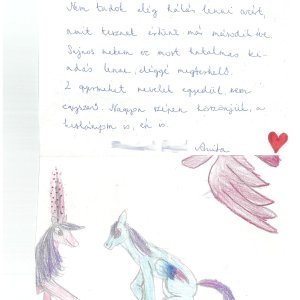 Nem tudok elég hálás lenni azért,
amit keznek értünk már második éve.
Sajnos nekem ez most hatalmas ki-
adás lenne, eléggé megterhelő.
2 gyermeket nevelek egyedül, nem
egyszerű. Nagyon szépen köszönjük, a
kislányom is, én is.
Anita